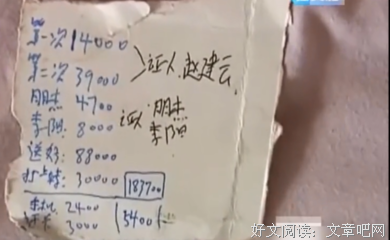 第一次14000
第二次39000 证人赵建云
朋杰4700
李阳:8000 证人:朋杰
李阳
送好:88000
30000 183700
2400 5400
3000
好文阅读:文章吧网